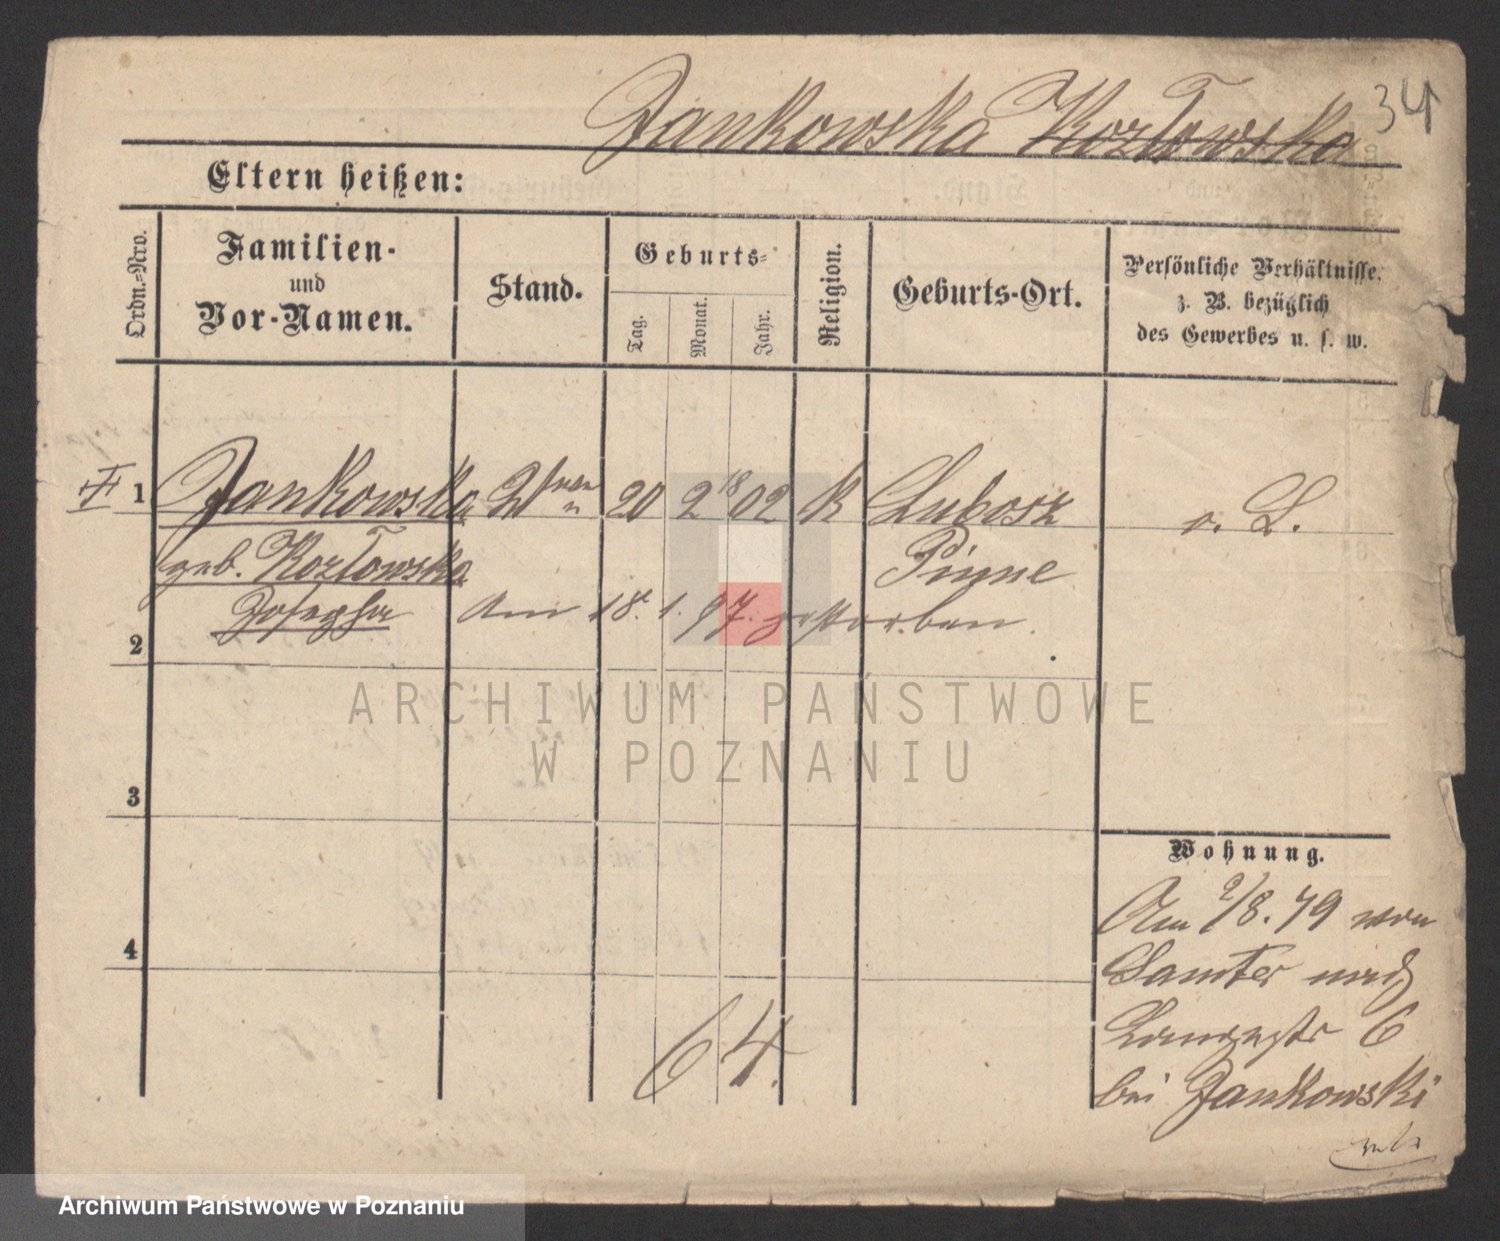 Jankowska Kozłowska
34
Eltern heißen:
Ordn.=Nro.
Familien-
und
Vor-Namen.
Stand.
Geburts=
Tag.
Monat.
Jahr.
Religion.
Geburts-Ort.
Persönliche Verhältnisse,
z. B. bezüglich
des Gewerbes u. s. w.
1 Jankowska 20 2 1802 K Lubosz
geb. Kozłowska Pinne
Josepha am 18. 1. 97. gestorben.
2
3
4
64.
Wohnung.
Am 9/8. 79 von
Samter nach
Langestr 6
bei Jankowski
ARCHIWUM PAŃSTWOWE
W POZNANIU
Archiwum Państwowe w Poznaniu